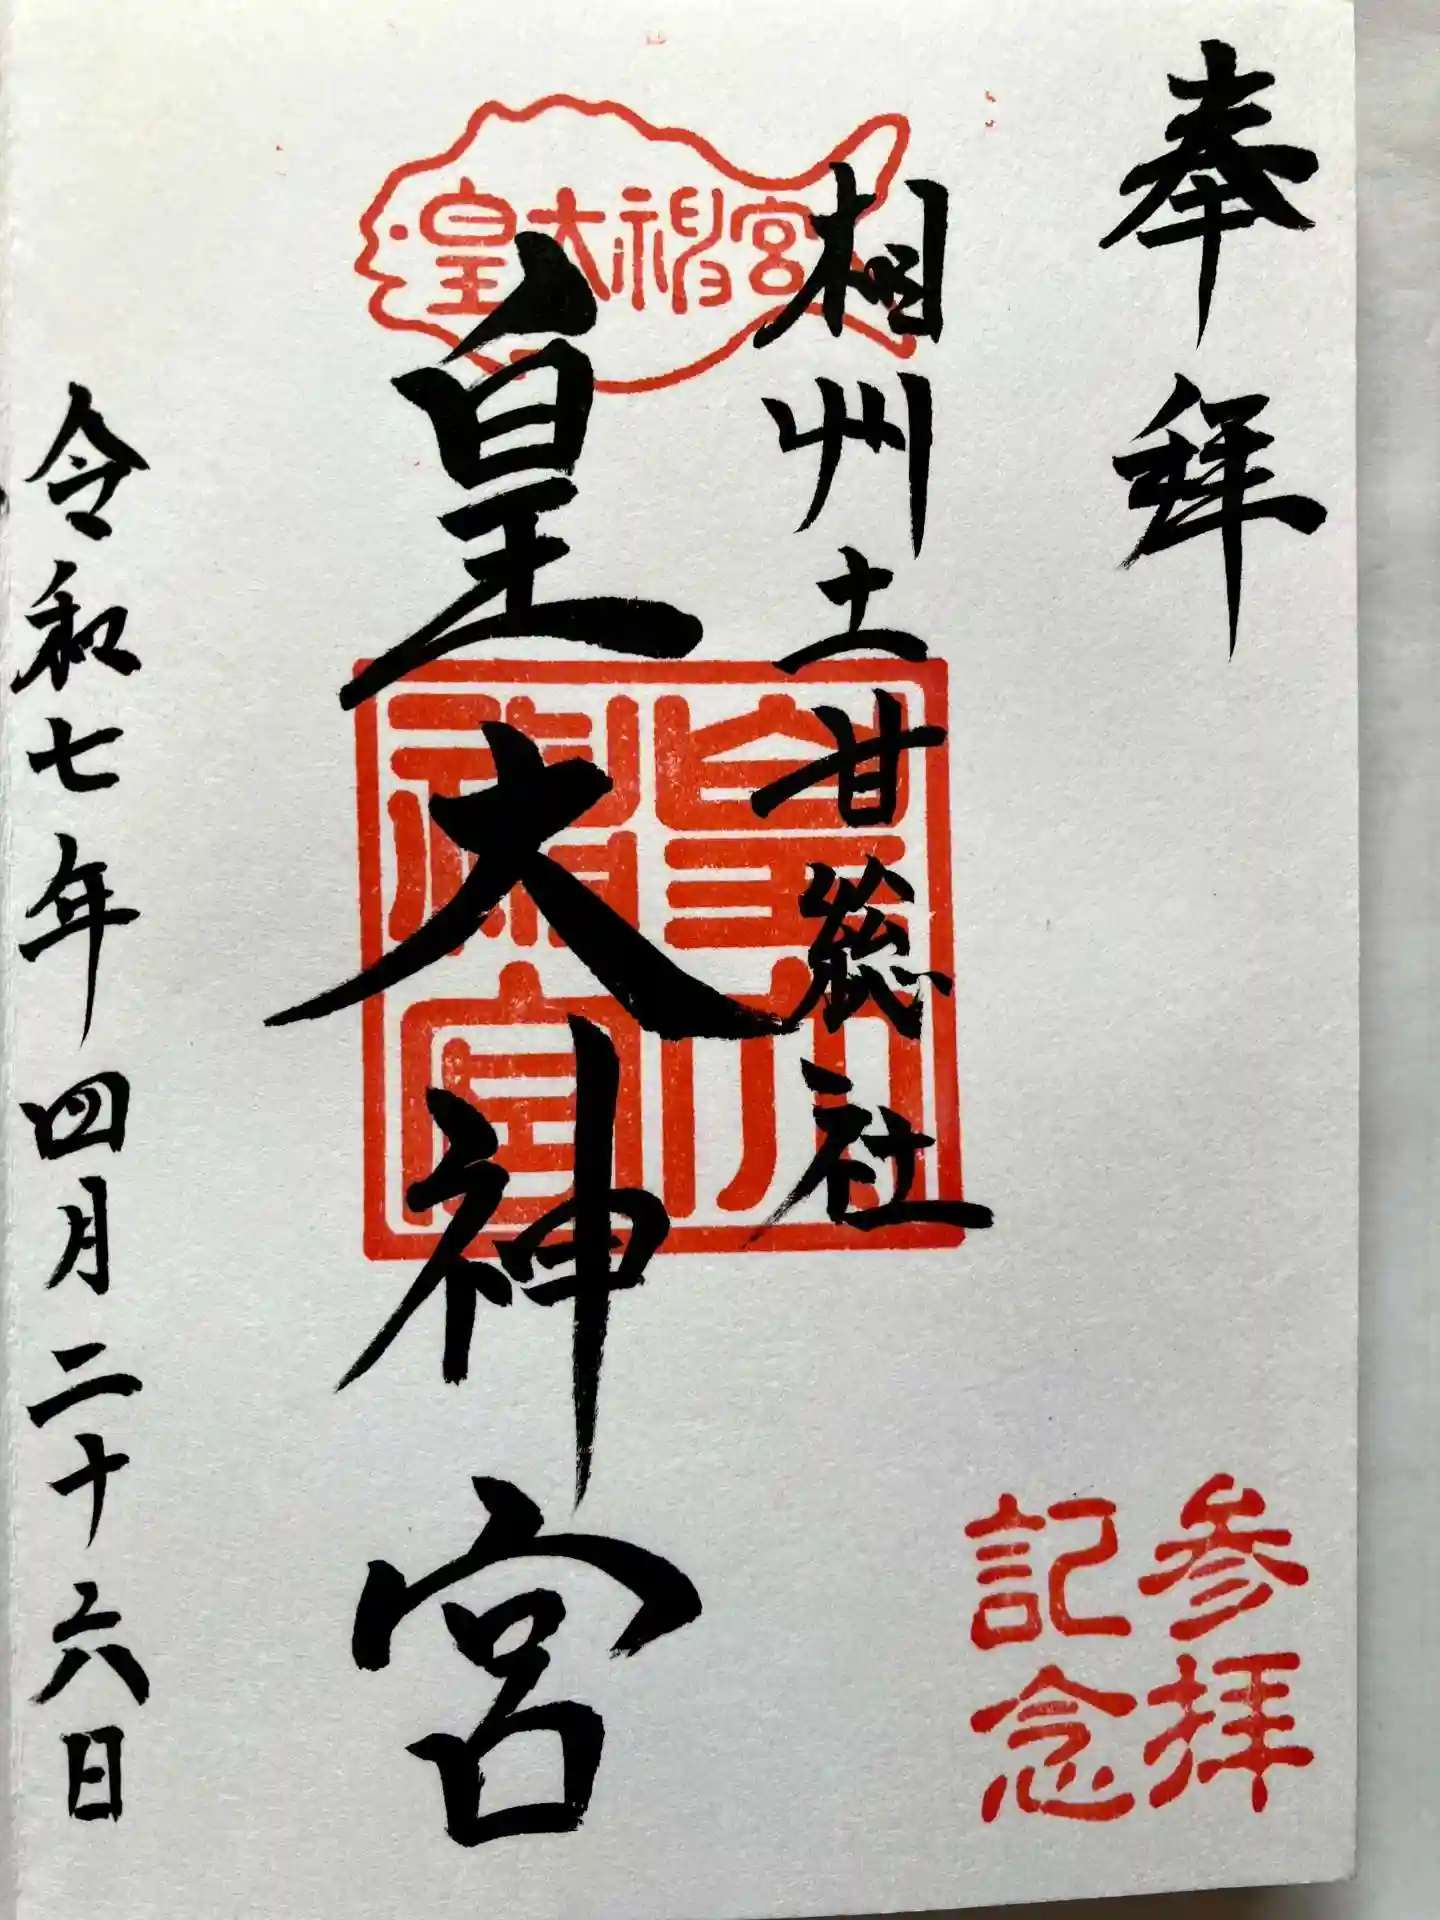 奉拜
相州土甘総社
皇大神宮
皇大神宮
皇大神宮
令和七年四月二十六日
参拝
記念